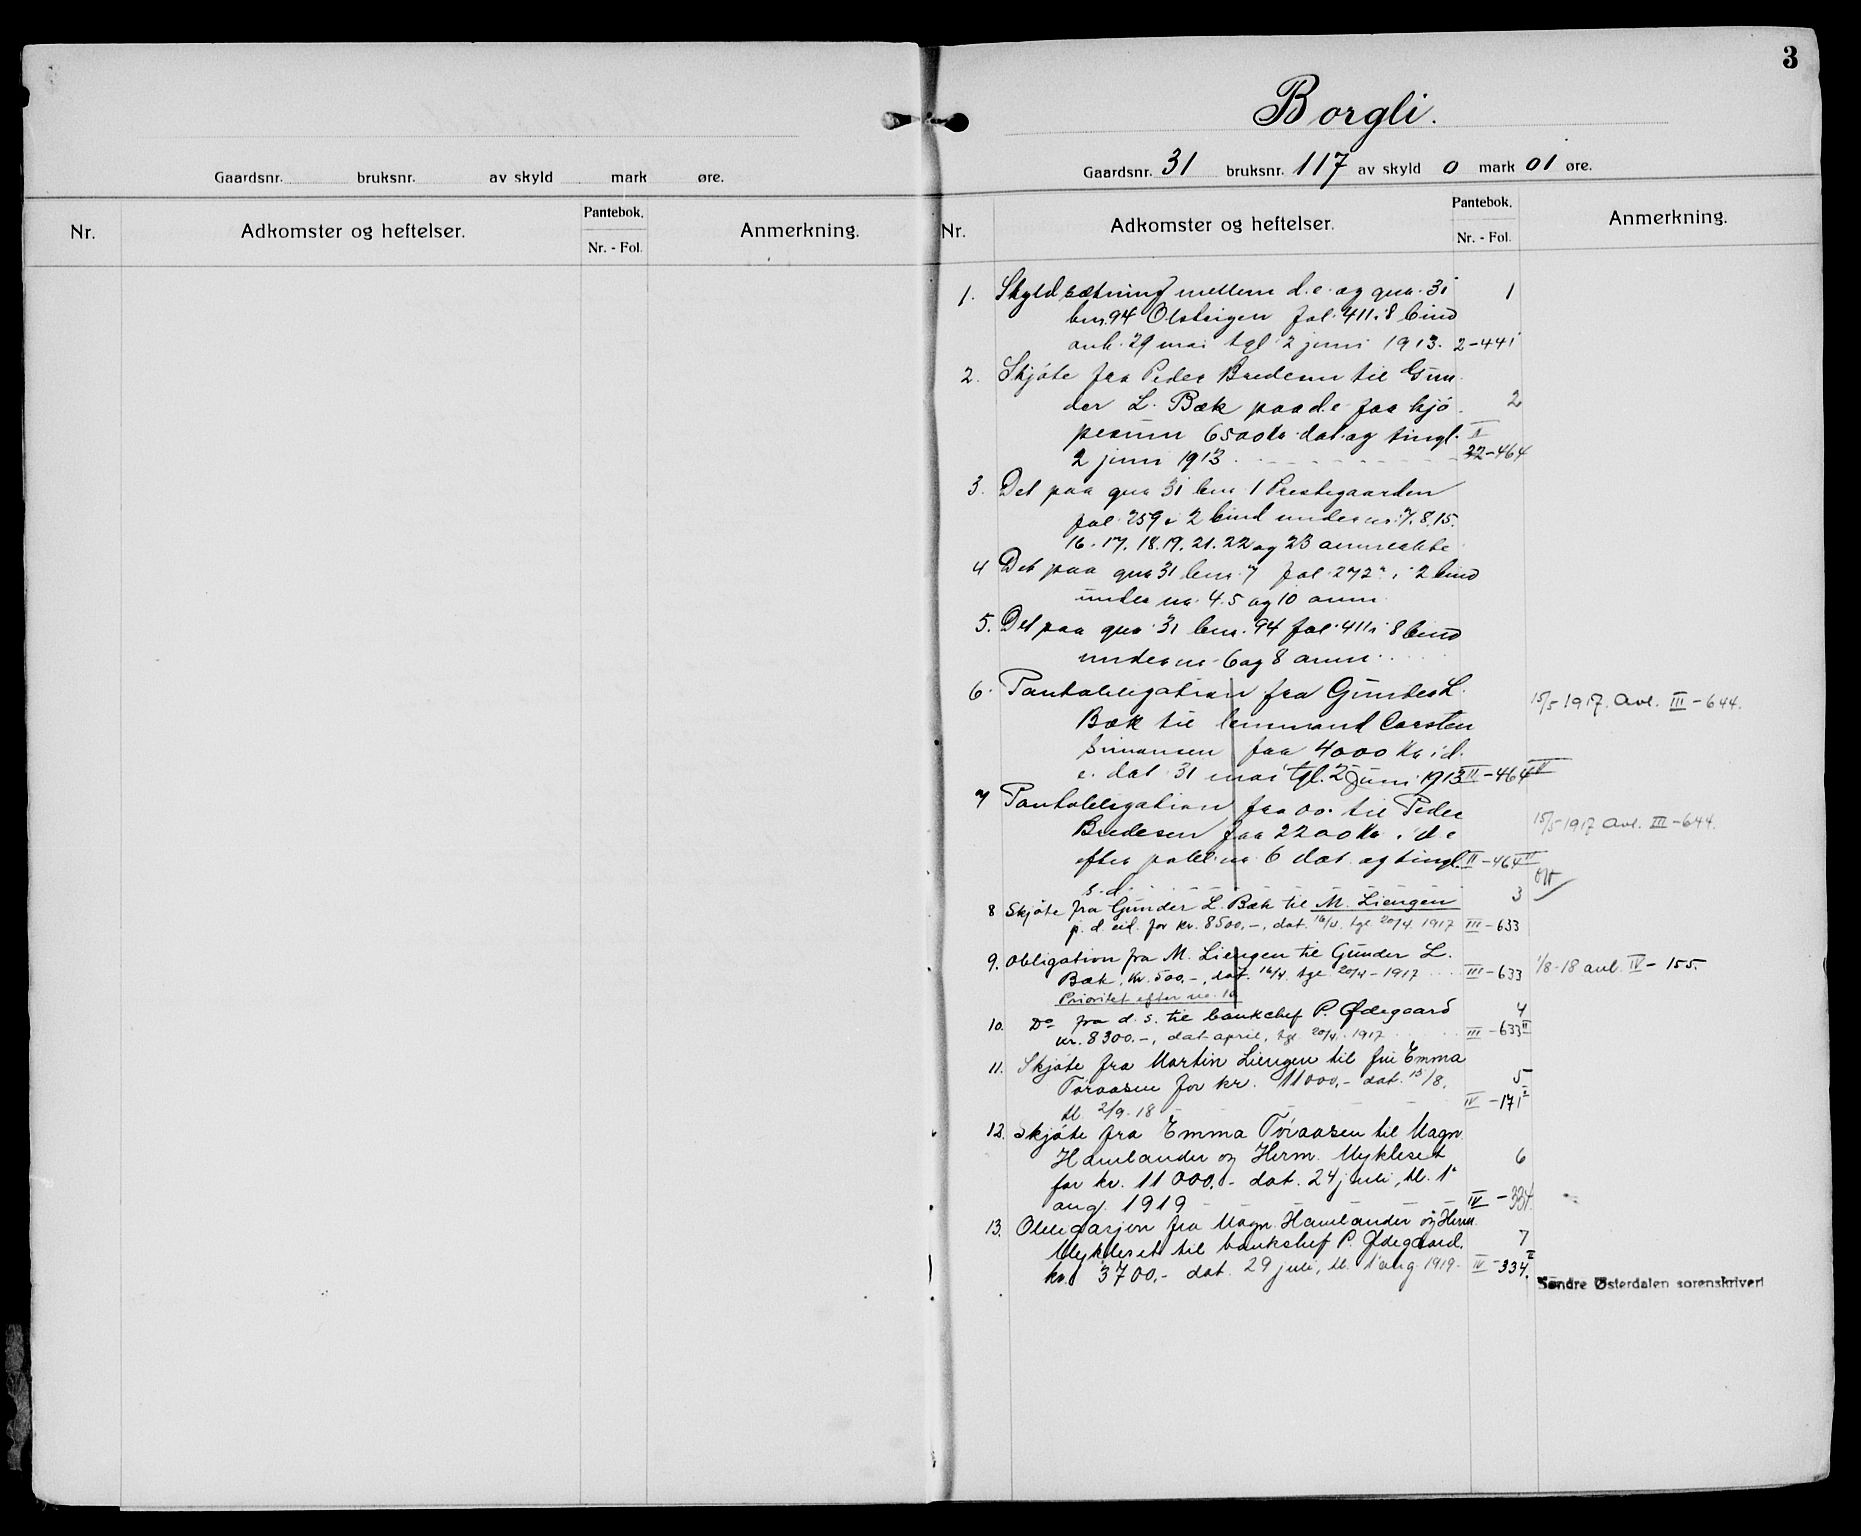 Gaardsnr. bruksnr. av skyld mark øre.
Nr. Adkomster og heftelser. Pantebok. Nr. - Fol. Anmerkning.
3
Borgli.
Gaardsnr. 31 bruksnr. 117 av skyld 0 mark 01 øre.
Nr. Adkomster og heftelser. Pantebok. Nr. - Fol. Anmerkning.
1. Skyldsætning mellem d.e. og gnr. 31 1
bnr. 94 fol. 411 i 8 bind
avh. 29 mai tgl. 2 juni 1913. 2-441
2. Skjøte fra Peder Bredesen til Gun
der L. Bæk paa d.e. for kjø 2
pesum 6500 kr. dat. og tingl. II
2 juni 1913 22-464
3. Det paa gnr. 31 bnr. 1 Prestegaarden
fol. 259 i 2 bind under nr. 7. 8. 15.
16. 17. 18. 19. 21. 22 og 23 anmerkte
4 Det paa gnr. 31 bnr. 7 fol. 272 i 2 bind
under nr. 4. 5 og 10 anm.
5. Det paa gnr. 31 bnr. 94 fol. 411 i 8 bind
under nr. 6 og 8 anm.
6. Pantobligation fra Gunder L. 15/5 1917. Avl. III-644.
Bæk til Carsten
Simonsen for 4000 kr. i d.
e. dat. 31 mai tgl. 2 juni 1913 II-464
7 Pantobligation fra do. til Peder 15/5 1917 Avl. III-644.
Bredesen for 2200 kr. i d.e.
efter nr. 6 dat. og tingl. II-464 II
s.d. 3
8 Skjøte fra Gunder L. Bæk til M. Liengen
p. d. eid. for kr. 8500.-, dat. 16/4. tgl. 20/4 1917 III-633
9. Obligation fra M. Liengen til Gunder L.
Bæk, kr. 500.-, dat. 16/4. tgl. 20/4-1917 III-633 1/8-18 avl. IV-155.
Prioritet efter no. 10
10. Do fra d. s. til banksjef P. Ødegaard 4
kr. 8300.-, dat april, tgl. 20/4. 1917 III-633 II
11. Skjøte fra Martin Liengen til fru Emma
Toraasen for kr. 11000.- dat. 15/8. 5
tl. 2/9-18 IV-171
12. Skjøte fra Emma Toraasen til Magn.
Hamlander og Herm. Mykleset 6
for kr. 11000.- dat. 24 juli, tl. 1
aug. 1919 IV-334.
13. Obligasjon fra Magn. Hamlander og Herm.
Mykleset til banksjef P. Ødegaard. 7
kr. 3700.- dat. 29 juli, tl. 1 aug. 1919. IV-334. II
Søndre Østerdalen sorenskriveri